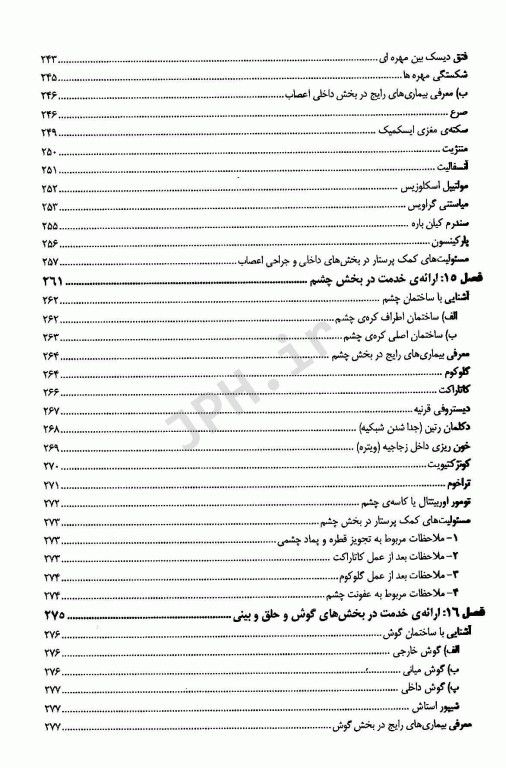 فتق دیسک بین مهره ای ۲۴۳
شکستگی مهره ها ۲۴۵
ب) معرفی بیماری‌های رایج در بخش داخلی اعصاب ۲۴۶
صرع ۲۴۶
سکته‌ی مغزی ایسکمیک ۲۴۹
مننژیت ۲۵۰
آنسفالیت ۲۵۱
مولتیپل اسکلوزیس ۲۵۲
میاستنی گراویس ۲۵۳
سندرم گیلن باره ۲۵۵
پارکینسون ۲۵۶
مسئولیت‌های کمک پرستار در بخش‌های داخلی و جراحی اعصاب ۲۵۷
فصل ۱۵: ارائه‌ی خدمت در بخش چشم ۲۶۱
آشنایی با ساختمان چشم ۲۶۲
الف) ساختمان اطراف کره‌ی چشم ۲۶۲
ب) ساختمان اصلی کره‌ی چشم ۲۶۳
معرفی بیماری‌های رایج در بخش چشم ۲۶۴
گلوکوم ۲۶۴
کاتاراکت ۲۶۶
دیستروفی قرنیه ۲۶۷
دکلمان رتین (جدا شدن شبکیه) ۲۶۸
خون ریزی داخل زجاجیه (ویتره) ۲۶۹
کونژکتیویت ۲۷۰
تراخوم ۲۷۱
تومور اوربیتال یا کاسه‌ی چشم ۲۷۲
مسئولیت‌های کمک پرستار در بخش چشم ۲۷۳
۱- ملاحظات مربوط به تجویز قطره و پماد چشمی ۲۷۳
۲- ملاحظات بعد از عمل کاتاراکت ۲۷۳
۳- ملاحظات بعد از عمل گلوکوم ۲۷۴
۴- ملاحظات مربوط به عفونت چشم ۲۷۴
فصل ۱۶: ارائه‌ی خدمت در بخش‌های گوش و حلق و بینی ۲۷۵
آشنایی با ساختمان گوش ۲۷۶
الف) گوش خارجی ۲۷۶
ب) گوش میانی ۲۷۶
پ) گوش داخلی ۲۷۷
شیپور استاش ۲۷۷
معرفی بیماری‌های رایج در بخش گوش ۲۷۷
JPH.ir